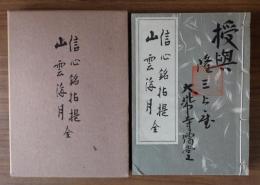 信心銘拈提
山雲海月 全
信心銘拈提
山雲海月 全
授與
隆三上座